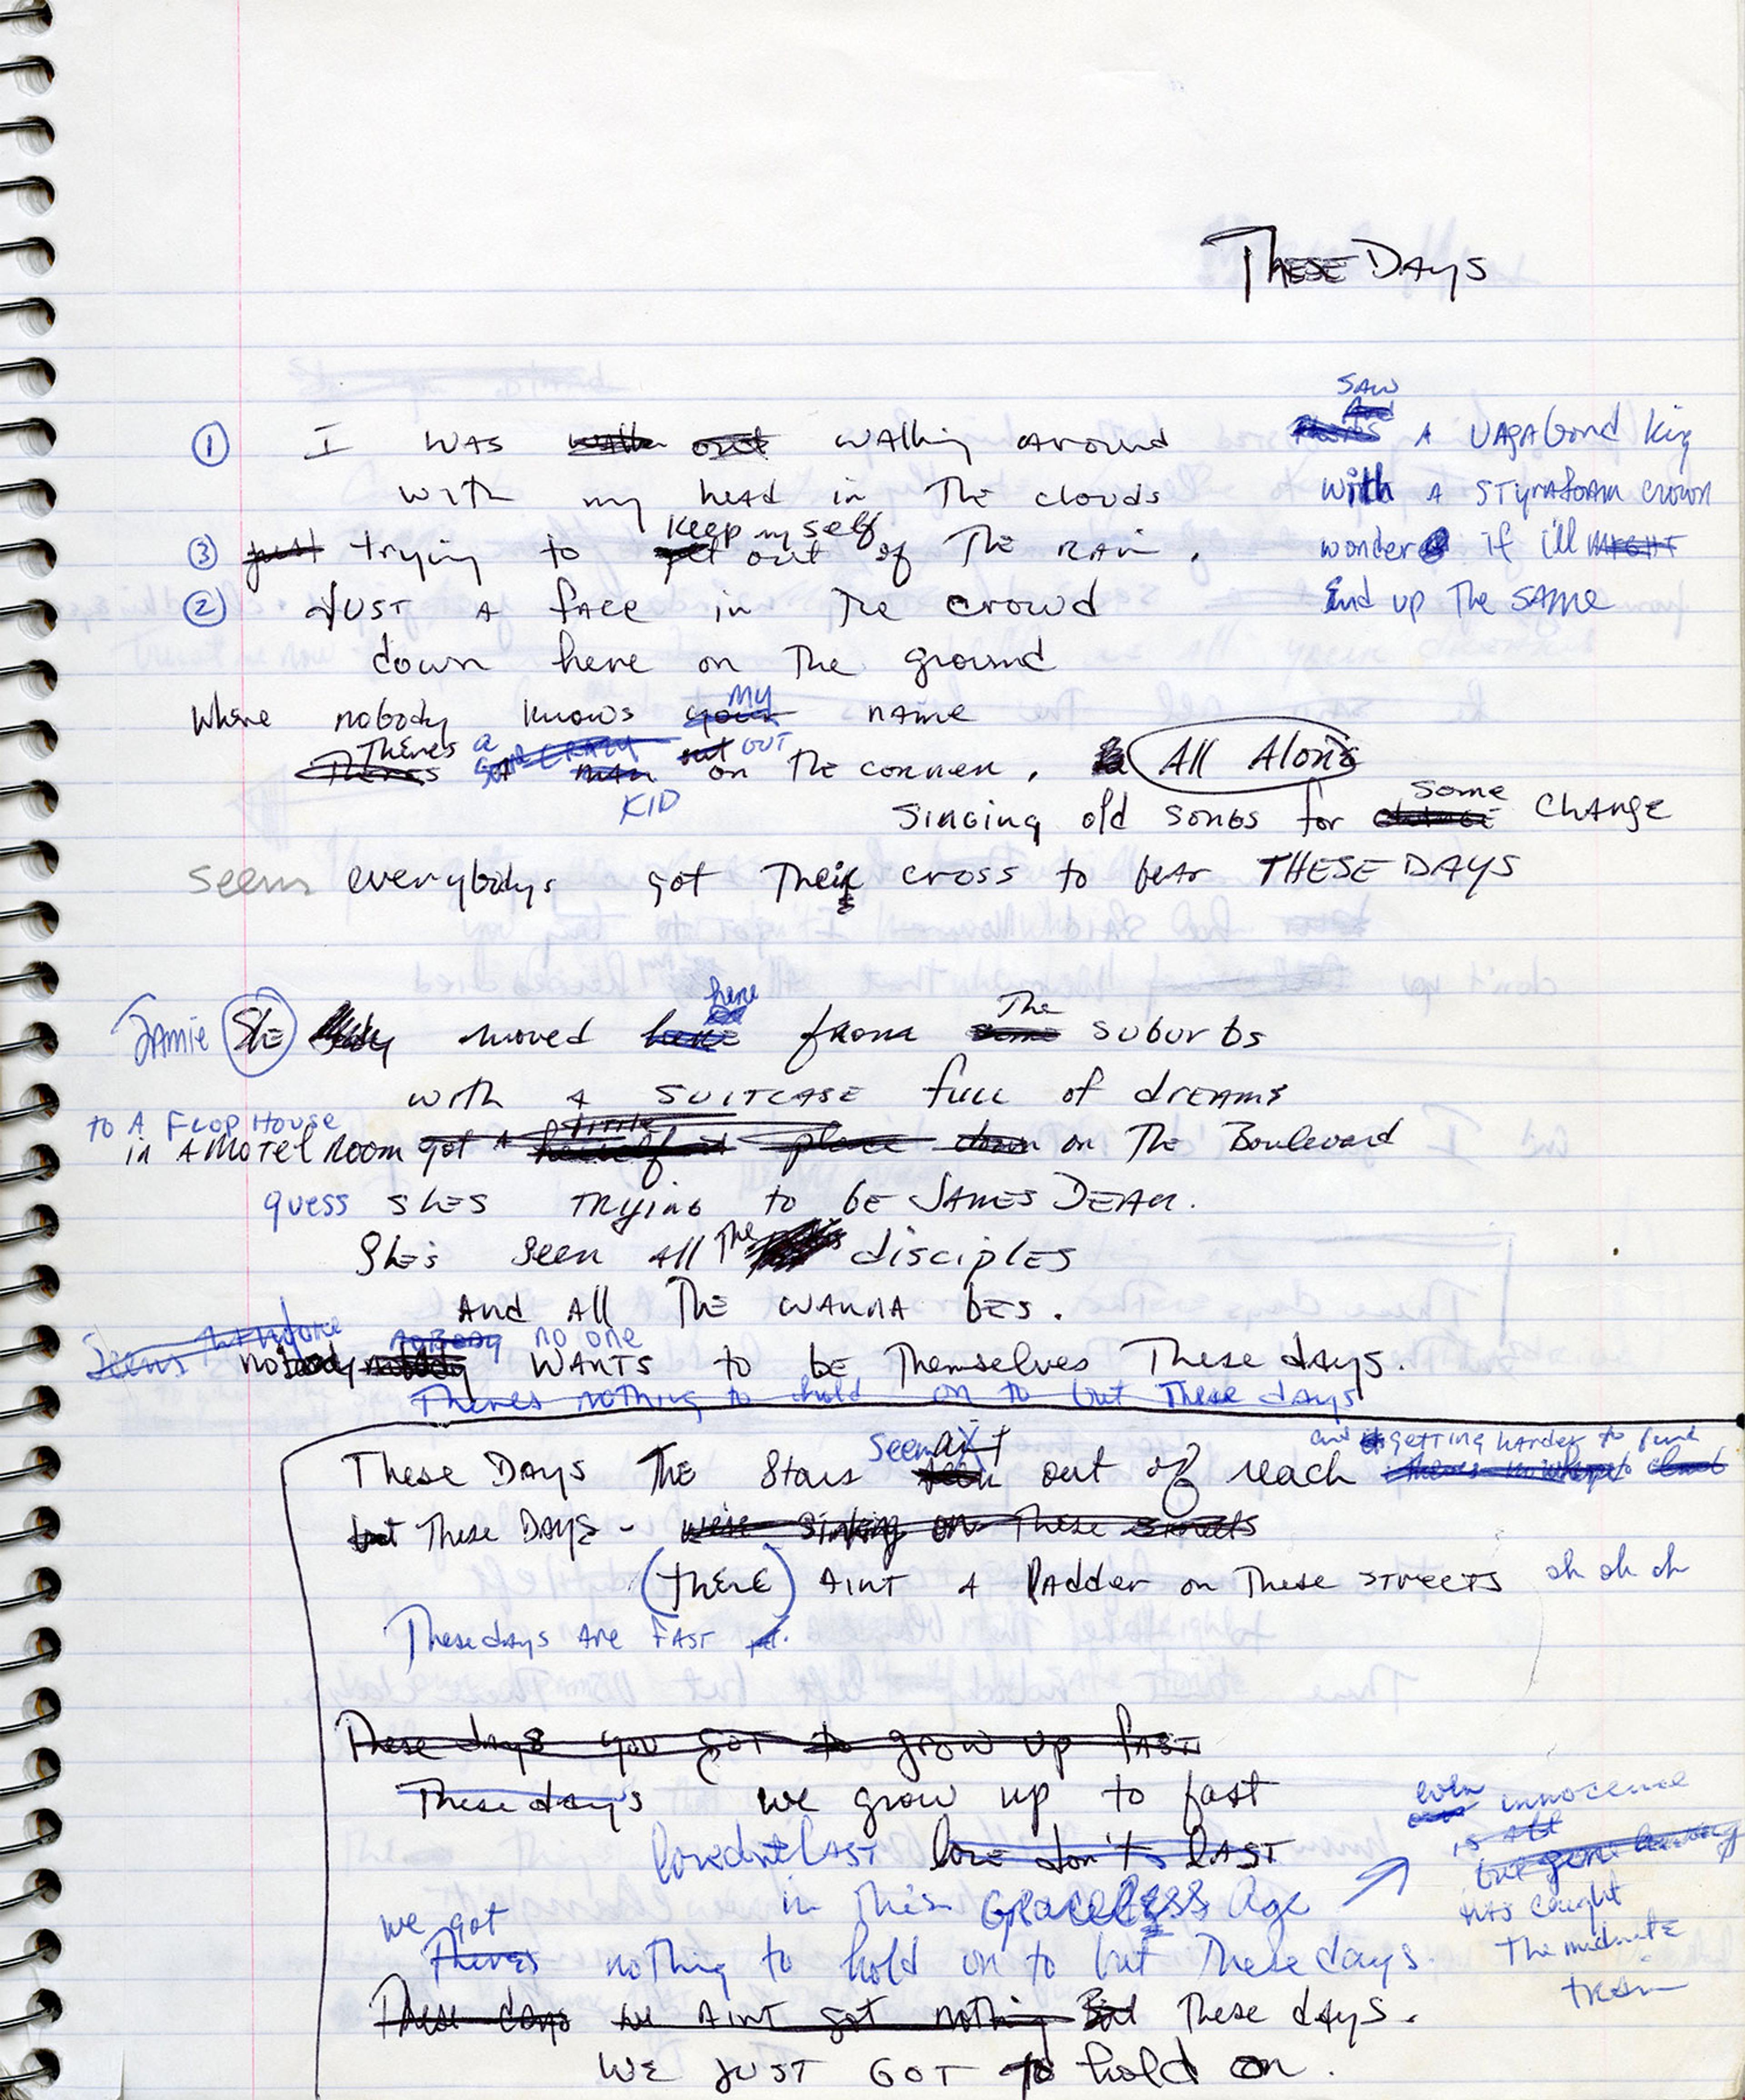 THESE DAYS
① I WAS walk out walking around
with my head in The clouds
③ just trying to get Keep myself out of The RAin.
② JUST A face in The crowd
down here on The ground
Where nobody knows your MY name
Theres Theres a some CRAZY A MAN KID out OUT on The corner, All Alone
Singing old songs for change some Change
Seems everybodys got Their cross to bear THESE DAYS
SAW And
A VAGAbond King
with A STyrafoam crown
wonder if i'll MIGHT
End up The SAME
Jamie She moved here here from some The suburbs
with A SUITCASE full of dreams
to A Flop House
in A MOTEL ROOM got A herself a little place down on The Boulevard
guess SHES TRYING to be JAMES DEAN.
She's Seen All The disciples
And All The WANNA BES.
Seems nobody nobody nobody no one WANTS to be Themselves These days.
Theres nothing to hold on to but These days
These Days The Stars seem seem ain't out of reach
and getting harder to find
but These DAYS - we're sinking on These streets
(there) AINT A ladder on These STREETS oh oh oh
These days Are FAST
These days you GOT to grow up fast
These days we grow up to fast
love dont LAST love don't LAST
in This Graceless Age
we got
Theres nothing to hold on to but These days.
These days we AINT got nothing But These days.
WE JUST GOT to hold on.
even innocence
is All
but gone
HAS Caught
The midnite
train